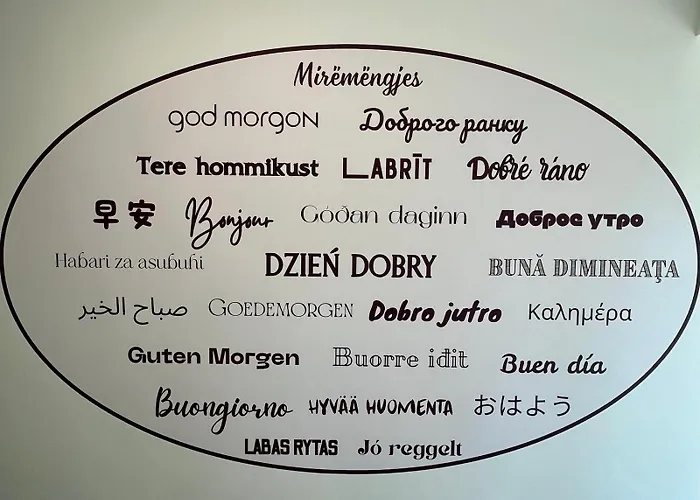 Mirëmëngjes
god morgon Доброго ранку
Tere hommikust LABRĪT Dobré ráno
早安 Bonjour Góðan daginn Доброе утро
Habari za asubuhi DZIEŃ DOBRY BUNĂ DIMINEAŢA
صباح الخير GOEDEMORGEN Dobro jutro Καλημέρα
Guten Morgen Buorre iđit Buen día
Buongiorno HYVÄÄ HUOMENTA おはよう
LABAS RYTAS Jó reggelt